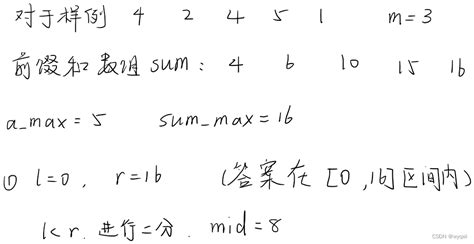 对于样例 4 2 4 5 1 m=3
前缀和数组 sum: 4 6 10 15 16
a_max = 5 sum_max = 16
① l=0, r=16 (答案在 [0,16] 区间内)
l<r. 进行二分. mid = 8